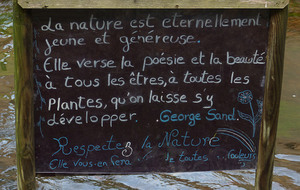 La nature est eternellement
jeune et généreuse.
Elle verse la poésie et la beauté
à tous les êtres, à toutes les
Plantes, qu'on laisse s'y
développer. George Sand.
Respectez la Nature
Elle Vous en Fera de toutes les Couleurs